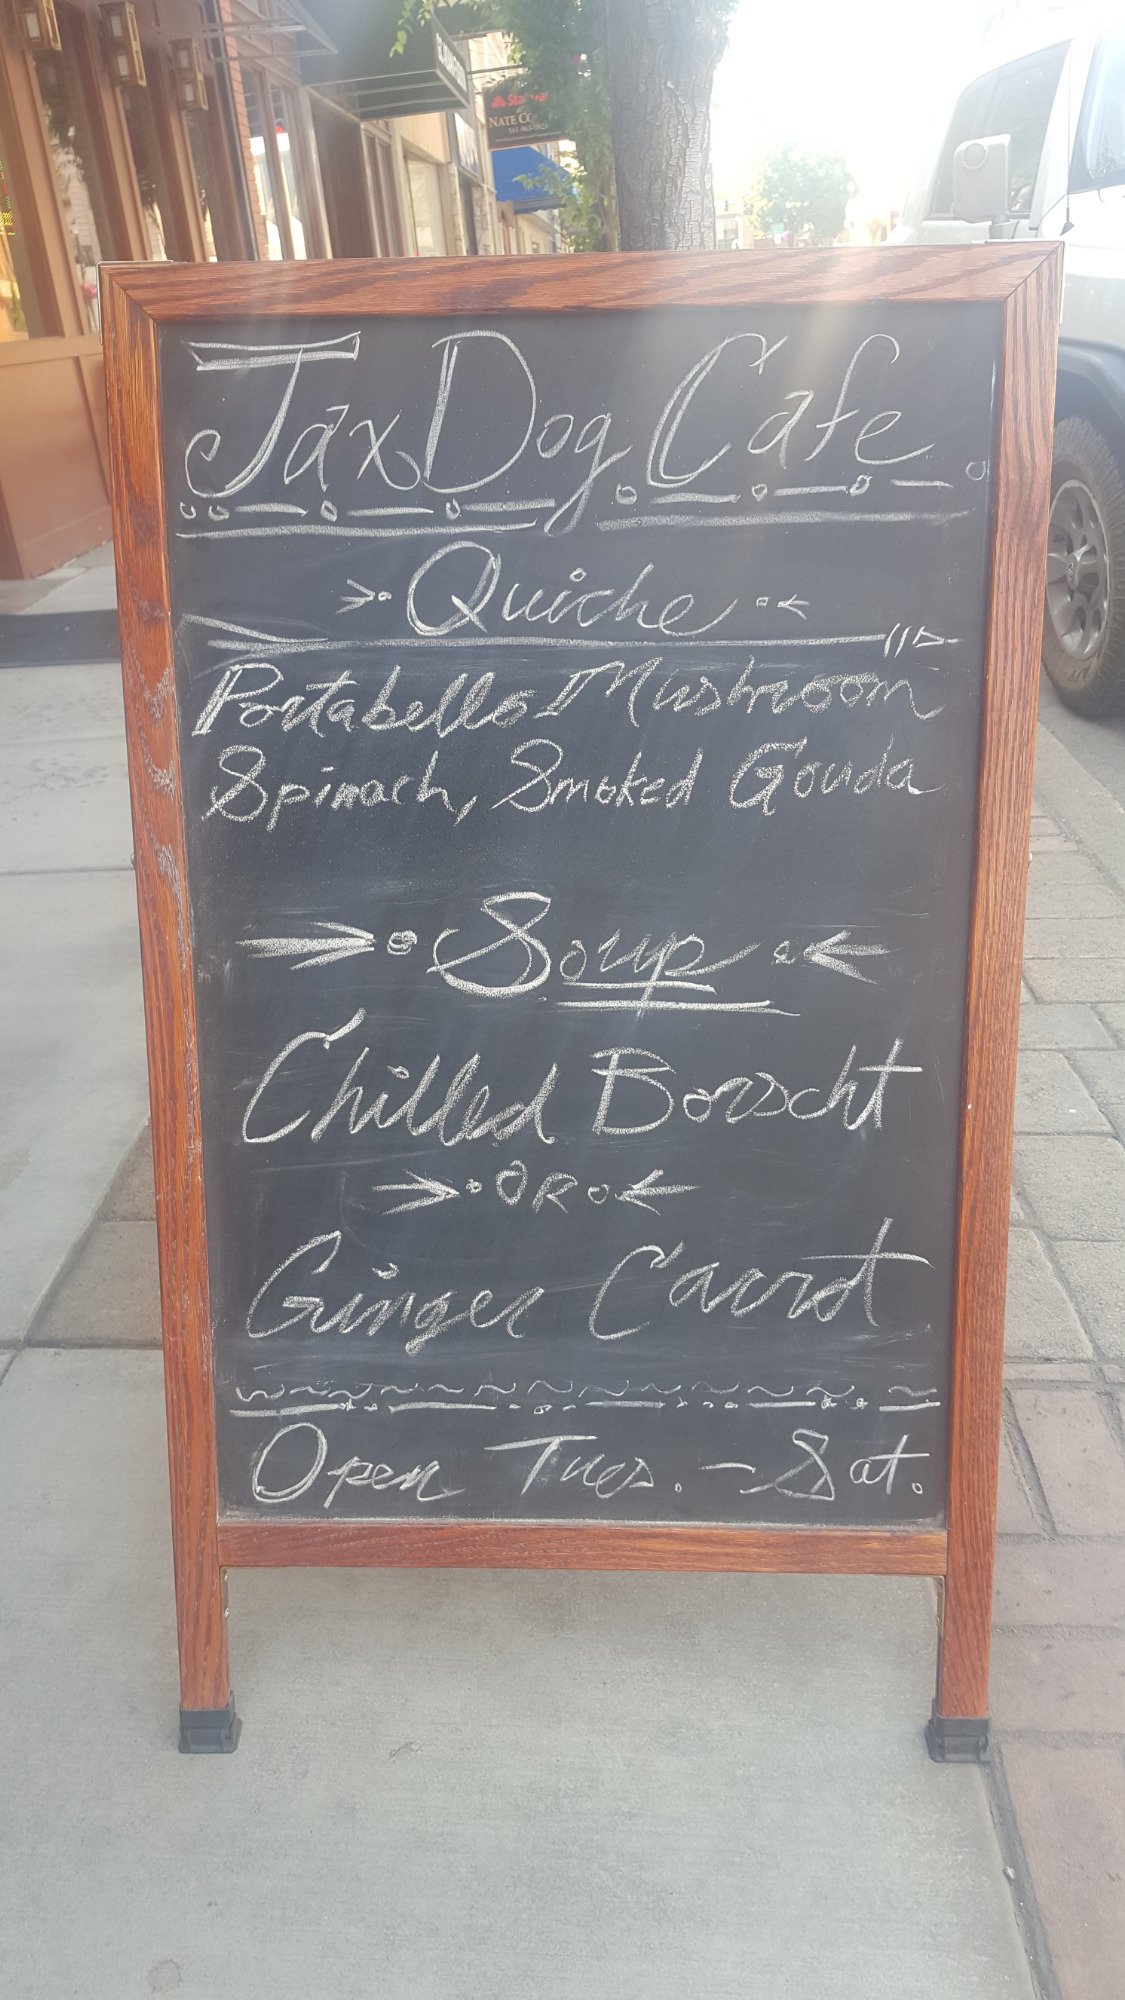 Sta
NATE CO
Jax Dog Cafe
Quiche
Portabello Mushroom
Spinach, Smoked Gouda
Soup
Chilled Borscht
OR
Ginger Carrot
Open Tues. - Sat.